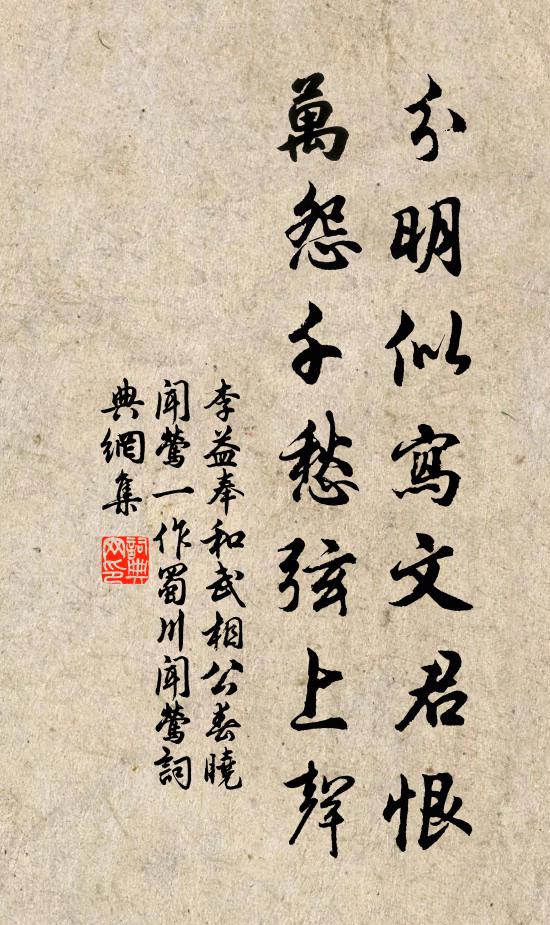 分明似寫文君恨
萬怨千愁弦上聲
李益奉和武相公春曉
聞鶯一作蜀川聞鶯詞
典網集
詞典網印